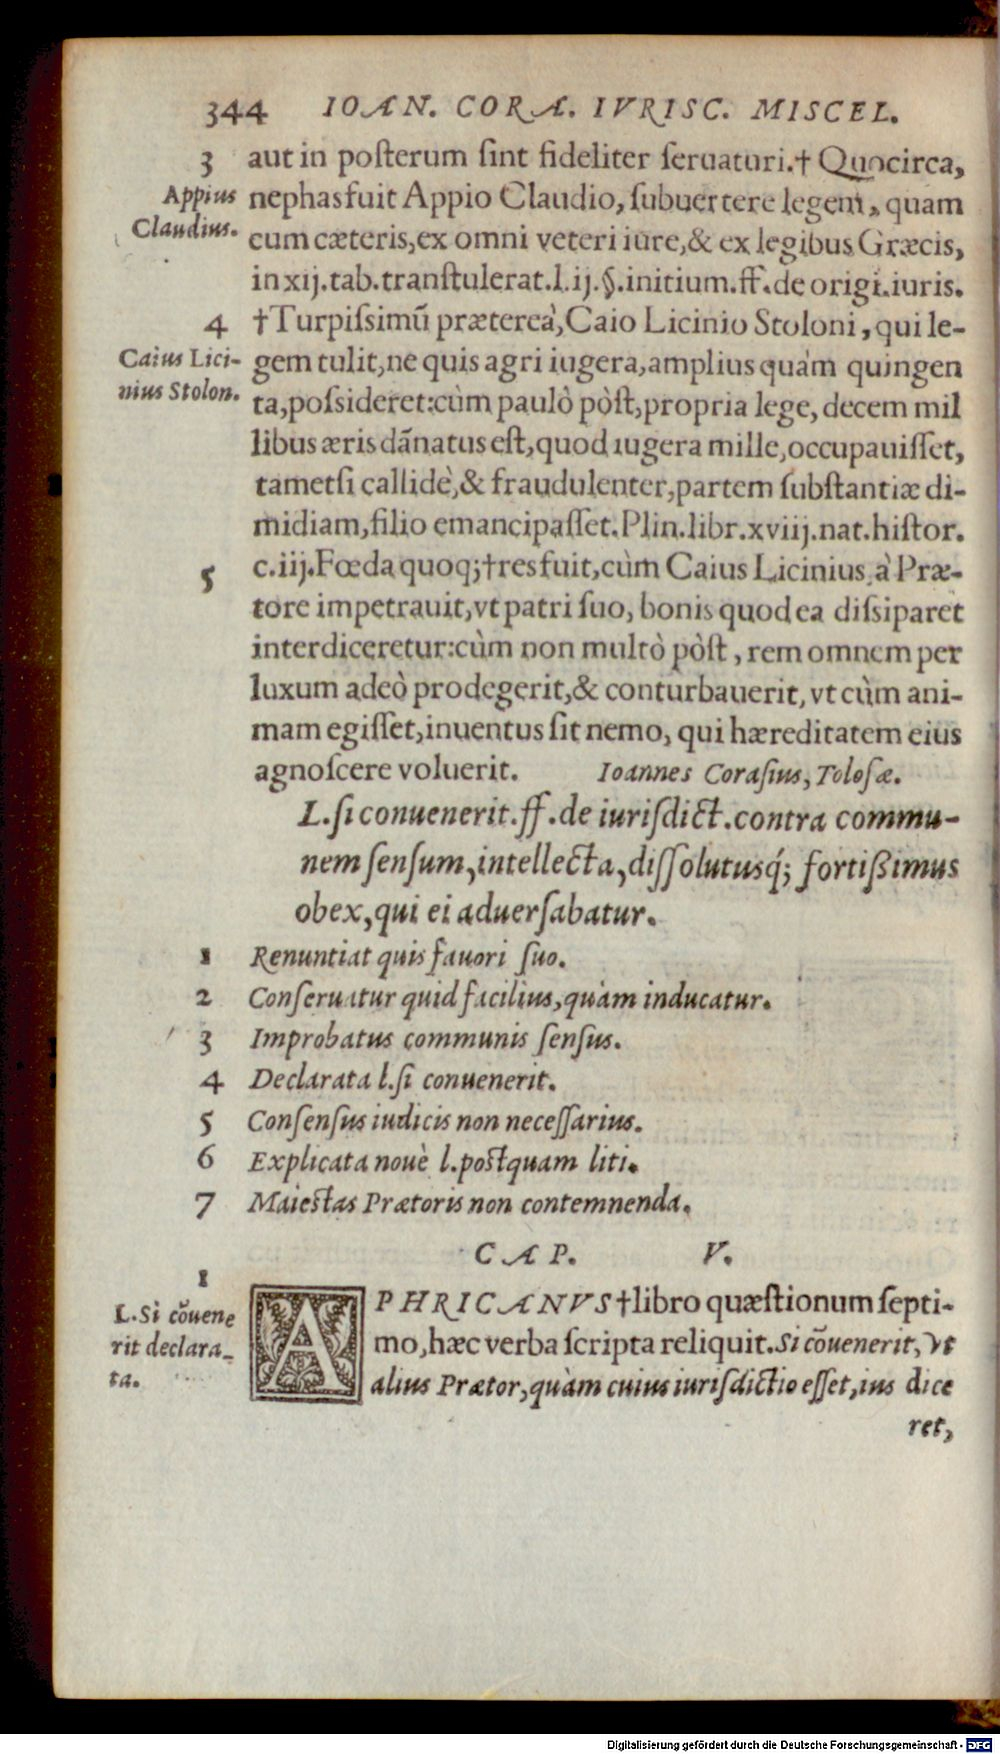 344 IOAN. CORA. IVRISC. MISCEL.
3 aut in poſterum ſint fideliter ſeruaturi.† Quocirca,
Appius nephas fuit Appio Claudio, ſubuertere legem, quam
Claudius. cum cæteris, ex omni veteri iure, & ex legibus Græcis,
in xij. tab. tranſtulerat. l. ij. §. initium. ff. de origi. iuris.
4 †Turpiſsimũ præterea, Caio Licinio Stoloni, qui le-
Caius Lici- gem tulit, ne quis agri iugera, amplius quàm quingen
nius Stolon. ta, poſsideret: cùm paulò pòſt, propria lege, decem mil
libus æris dãnatus eſt, quod iugera mille, occupauiſſet,
tametſi callidè, & fraudulenter, partem ſubſtantiæ di-
midiam, filio emancipaſſet. Plin. libr. xviij. nat. hiſtor.
5 c. iij. Fœda quoq;† res fuit, cùm Caius Licinius, à Præ-
tore impetrauit, vt patri ſuo, bonis quod ea diſsiparet
interdiceretur: cùm non multò pòſt, rem omnem per
luxum adeò prodegerit, & conturbauerit, vt cùm ani-
mam egiſſet, inuentus ſit nemo, qui hæreditatem eius
agnoſcere voluerit. Ioannes Coraſius, Toloſæ.
L. ſi conuenerit. ff. de iuriſdict. contra commu-
nem ſenſum, intellecta, diſſolutusq́; fortißimus
obex, qui ei aduerſabatur.
1 Renuntiat quis fauori ſuo.
2 Conſeruatur quid facilius, quàm inducatur.
3 Improbatus communis ſenſus.
4 Declarata l. ſi conuenerit.
5 Conſenſus iudicis non neceſſarius.
6 Explicata nouè l. poſtquam liti.
7 Maieſtas Prætoris non contemnenda.
CAP. V.
1
L. Si cõuene
rit declara-
ta.
APHRICANVS † libro quæſtionum ſepti-
mo, hæc verba ſcripta reliquit. Si cõuenerit, vt
alius Prætor, quàm cuius iuriſdictio eſſet, ius dice
ret,
Digitalisierung gefördert durch die Deutsche Forschungsgemeinschaft - DFG